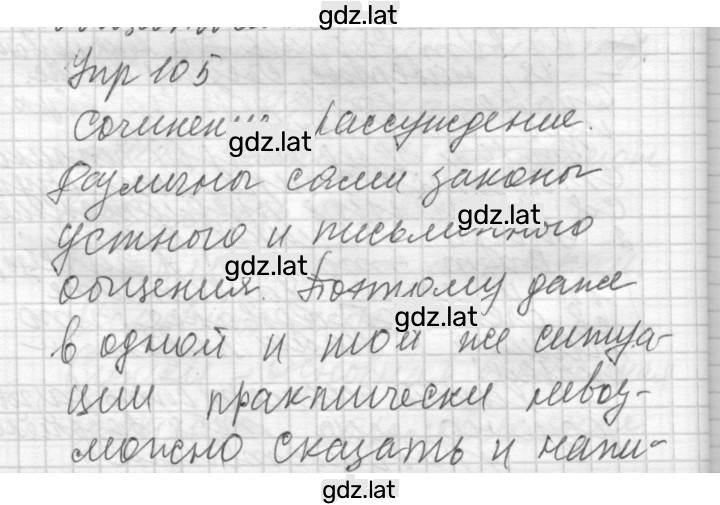 gdz.lat
Упр 105
Сочинен... Рассуждение.
gdz.lat
Различны сами законы
gdz.lat
устного и письменного
gdz.lat
общения. Поэтому даже
gdz.lat
в одной и той же ситуа-
ции практически невоз-
можно сказать и напи-
gdz.lat